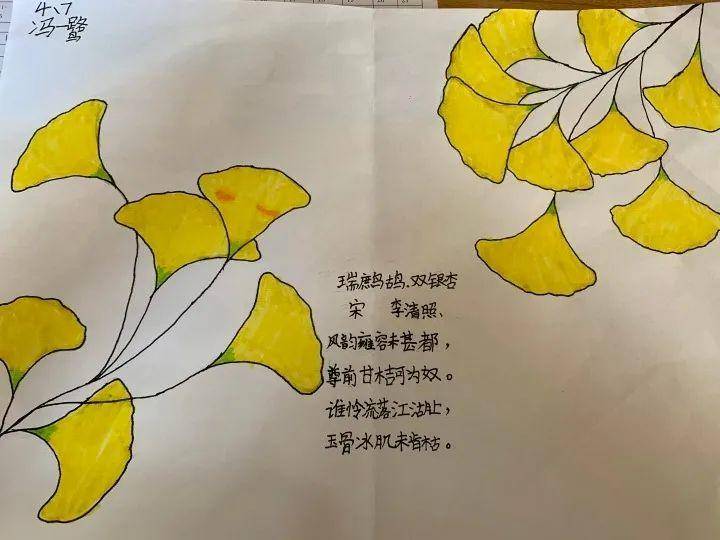 4、7
冯一鹭
瑞鹧鸪.双银杏
宋 李清照、
风韵雍容未甚都，
尊前甘桔可为奴。
谁怜流落江沽上，
玉骨冰肌未肯枯。